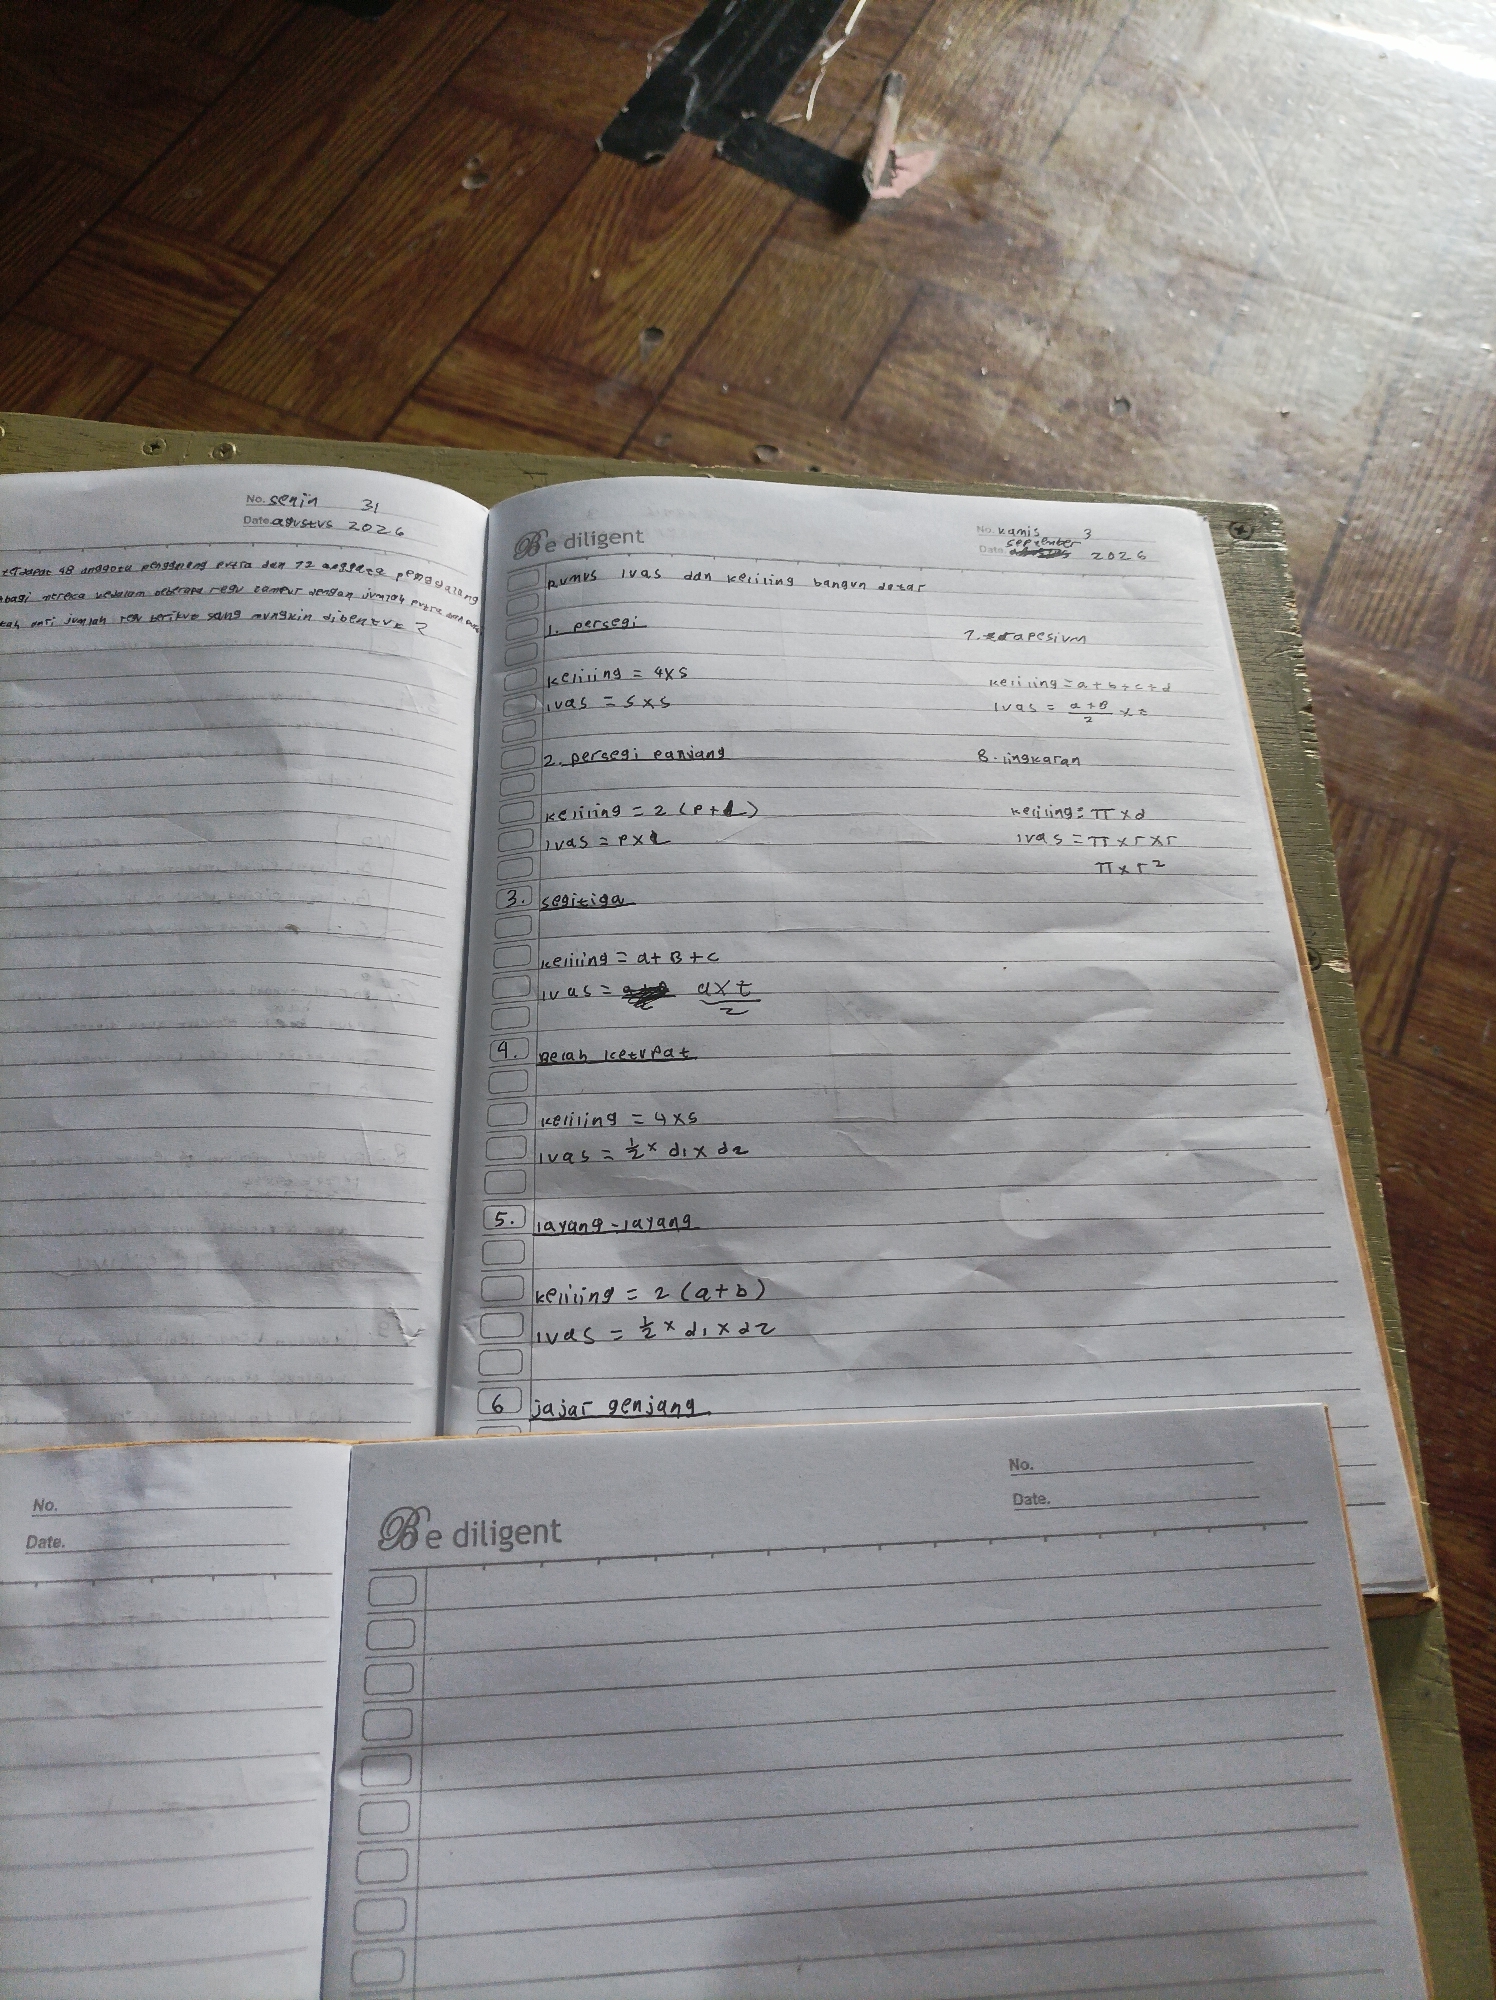 No. senin 31
Date. agustus 2026
terdapat 48 anggota penggalang putra dan 72 anggota penggalang
bagi mereka kedalam beberapa regu campur dengan jumlah putra dan
jumlah regu berikut yang mungkin dibentuk?
Be diligent
No. kamis 3
Date. september 2026
Rumus luas dan keliling bangun datar
1. persegi
keliling = 4xs
luas = s x s
2. persegi panjang
keliling = 2 (p+l)
luas = p x l
3. segitiga
keliling = a + B + c
luas = a x t / 2
4. Belah ketupat
keliling = 4 x s
luas = 1/2 x d1 x d2
5. layang-layang
keliling = 2 (a+b)
luas = 1/2 x d1 x d2
6 jajar genjang
7. trapesium
keliling = a + b + c + d
luas = a + B / 2 x t
8. lingkaran
keliling = π x d
luas = π x r x r
π x r²
No.
Date.
Be diligent
No.
Date.